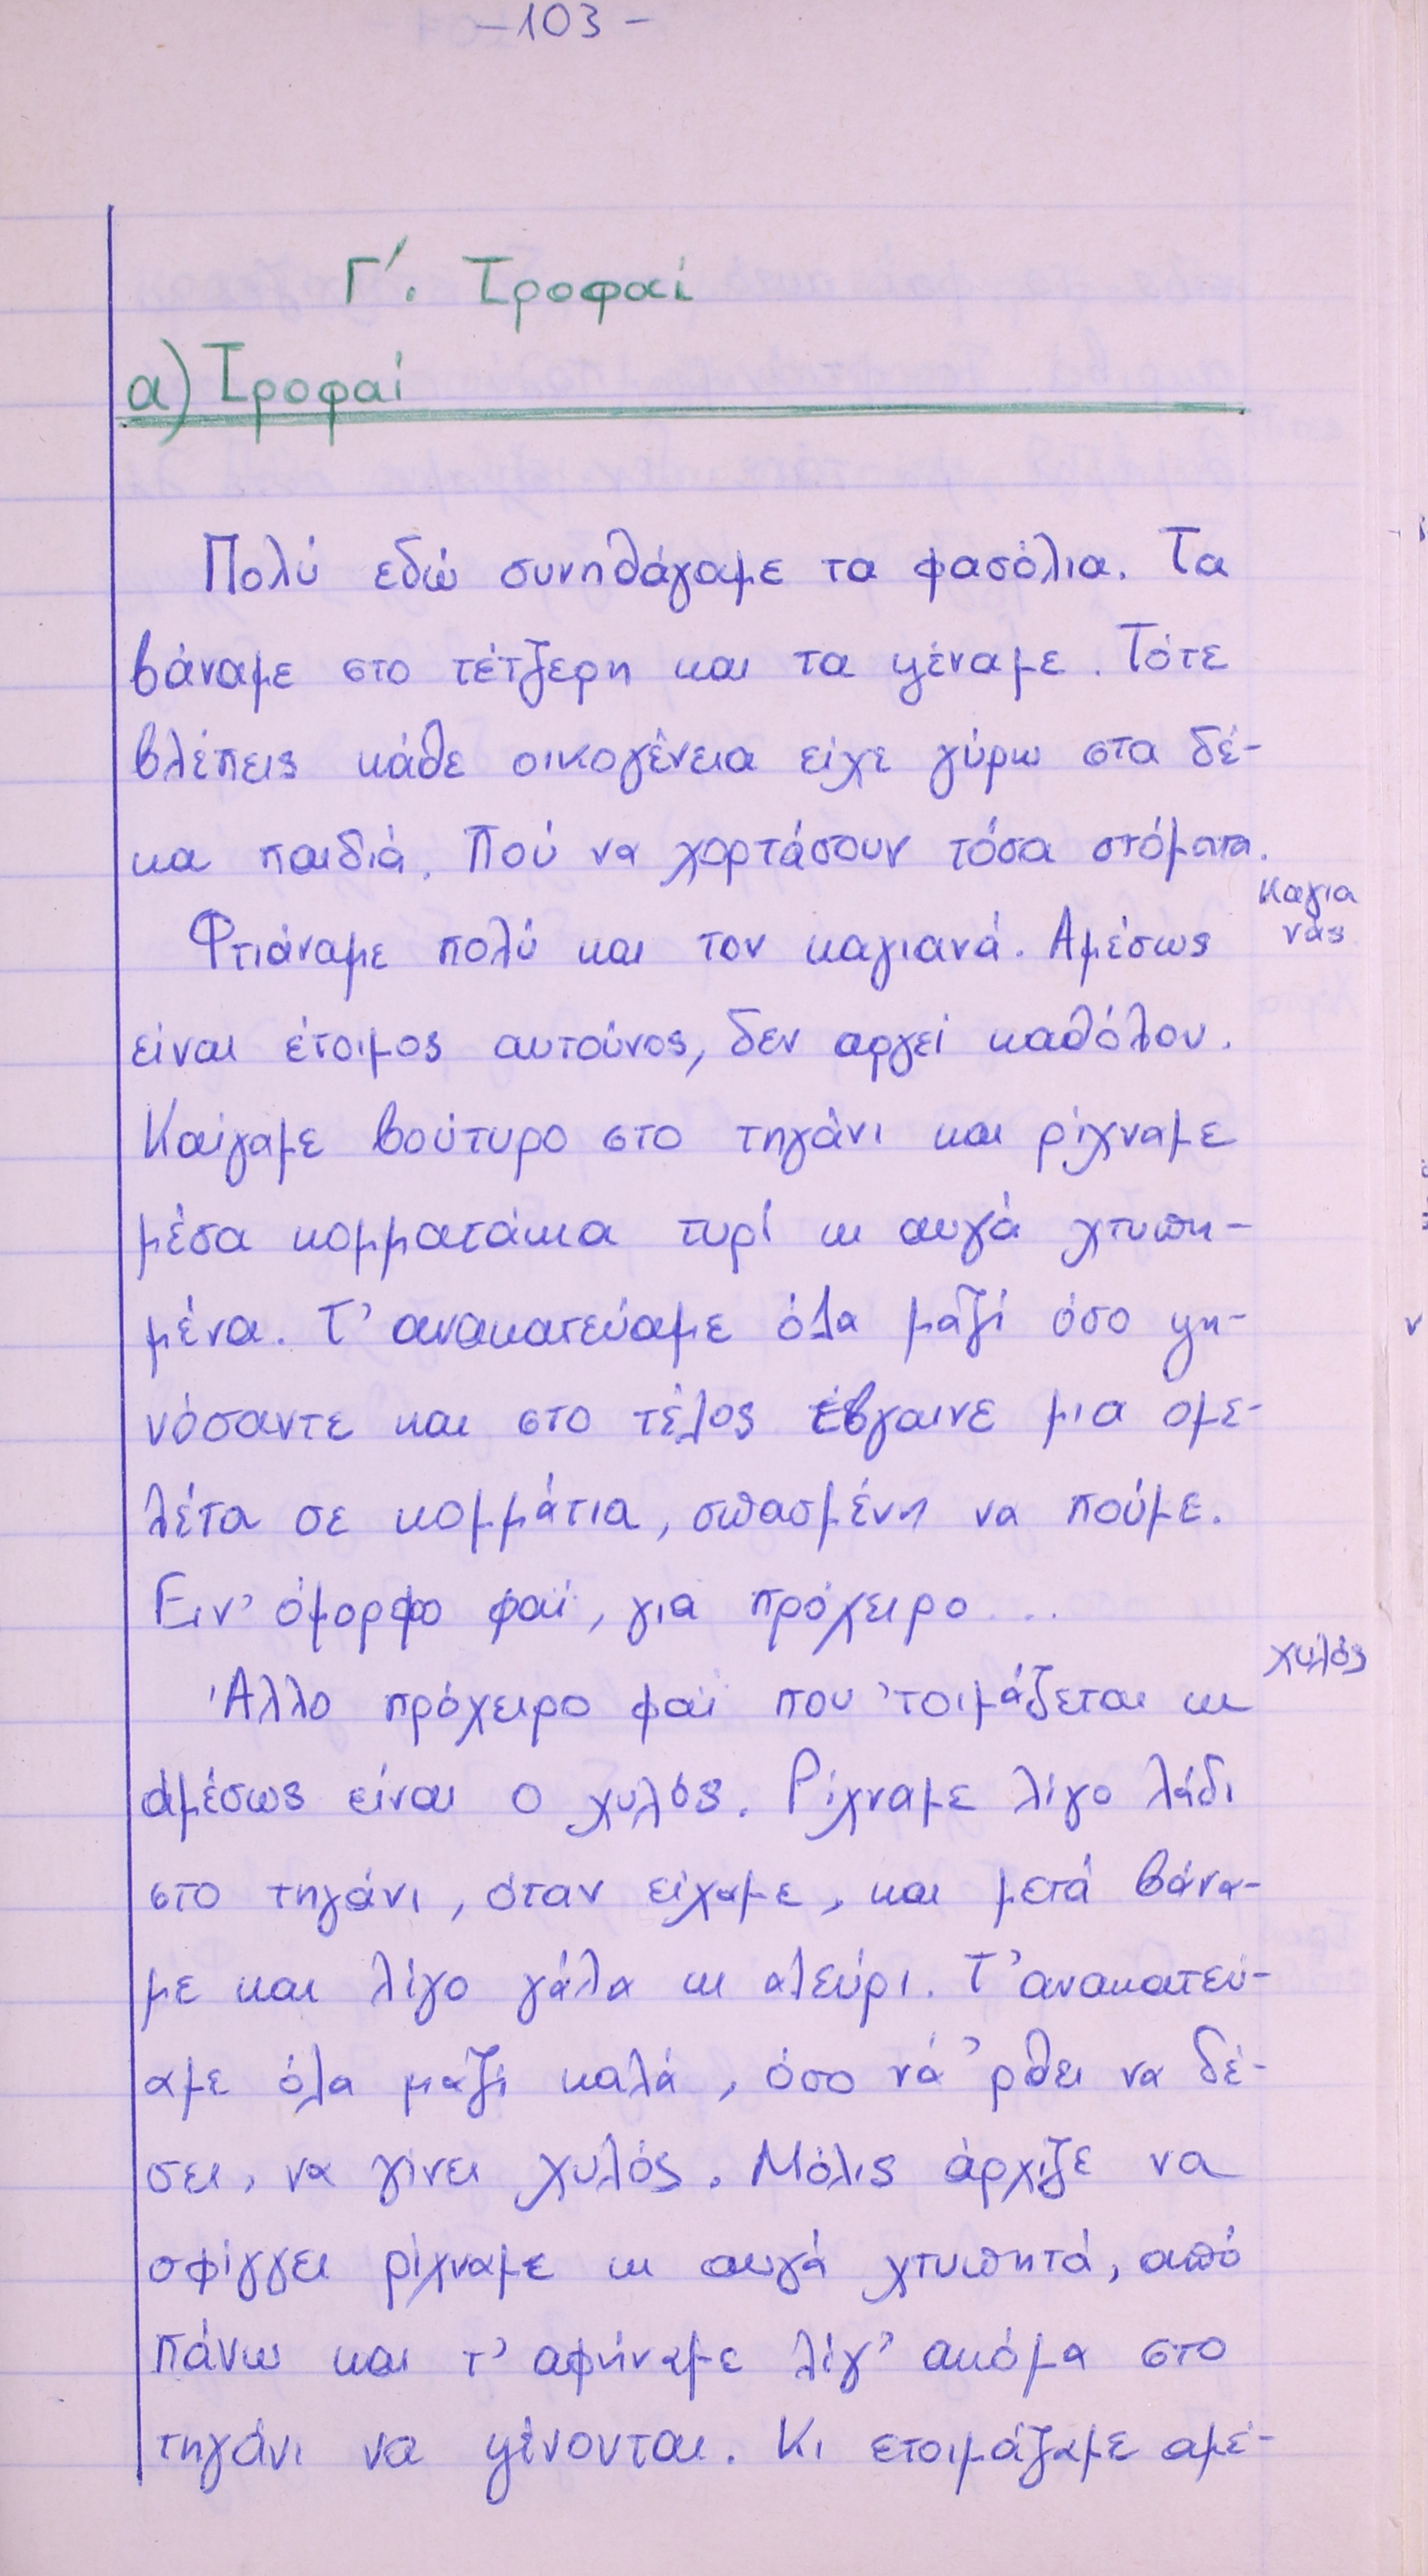 -103-
Γ'. Τροφαί
α) Τροφαί
Πολύ εδώ συνηθάγαμε τα φασόλια. Τα
βάναμε στο τέτζερη και τα ψέναμε. Τότε
βλέπεις κάθε οικογένεια είχε γύρω στα δέ-
κα παιδιά. Πού να χορτάσουν τόσα στόματα.
Καγια
νάς
Φτιάναμε πολύ και τον καγιανά. Αμέσως
είναι έτοιμος αυτούνος, δεν αργεί καθόλου.
Καίγαμε βούτυρο στο τηγάνι και ρίχναμε
μέσα κομματάκια τυρί κι αυγά χτυπη-
μένα. Τ' ανακατεύαμε όλα μαζί όσο ψη-
νόσαντε και στο τέλος έβγαινε μια ομε-
λέτα σε κομμάτια, σπασμένη να πούμε.
Ειν' όμορφο φαϊ, για πρόχειρο...
χυλός
Άλλο πρόχειρο φαϊ που 'τοιμάζεται κι
αμέσως είναι ο χυλός. Ρίχναμε λίγο λάδι
στο τηγάνι, όταν είχαμε, και μετά βάνα-
με και λίγο γάλα κι αλεύρι. Τ' ανακατεύ-
αμε όλα μαζί καλά, όσο νά 'ρθει να δέ-
σει, να γίνει χυλός. Μόλις άρχιζε να
σφίγγει ρίχναμε κι αυγά χτυπητά, από
πάνω και τ' αφήναμε λίγ' ακόμα στο
τηγάνι να ψένονται. Κι ετοιμάζαμε αμέ-